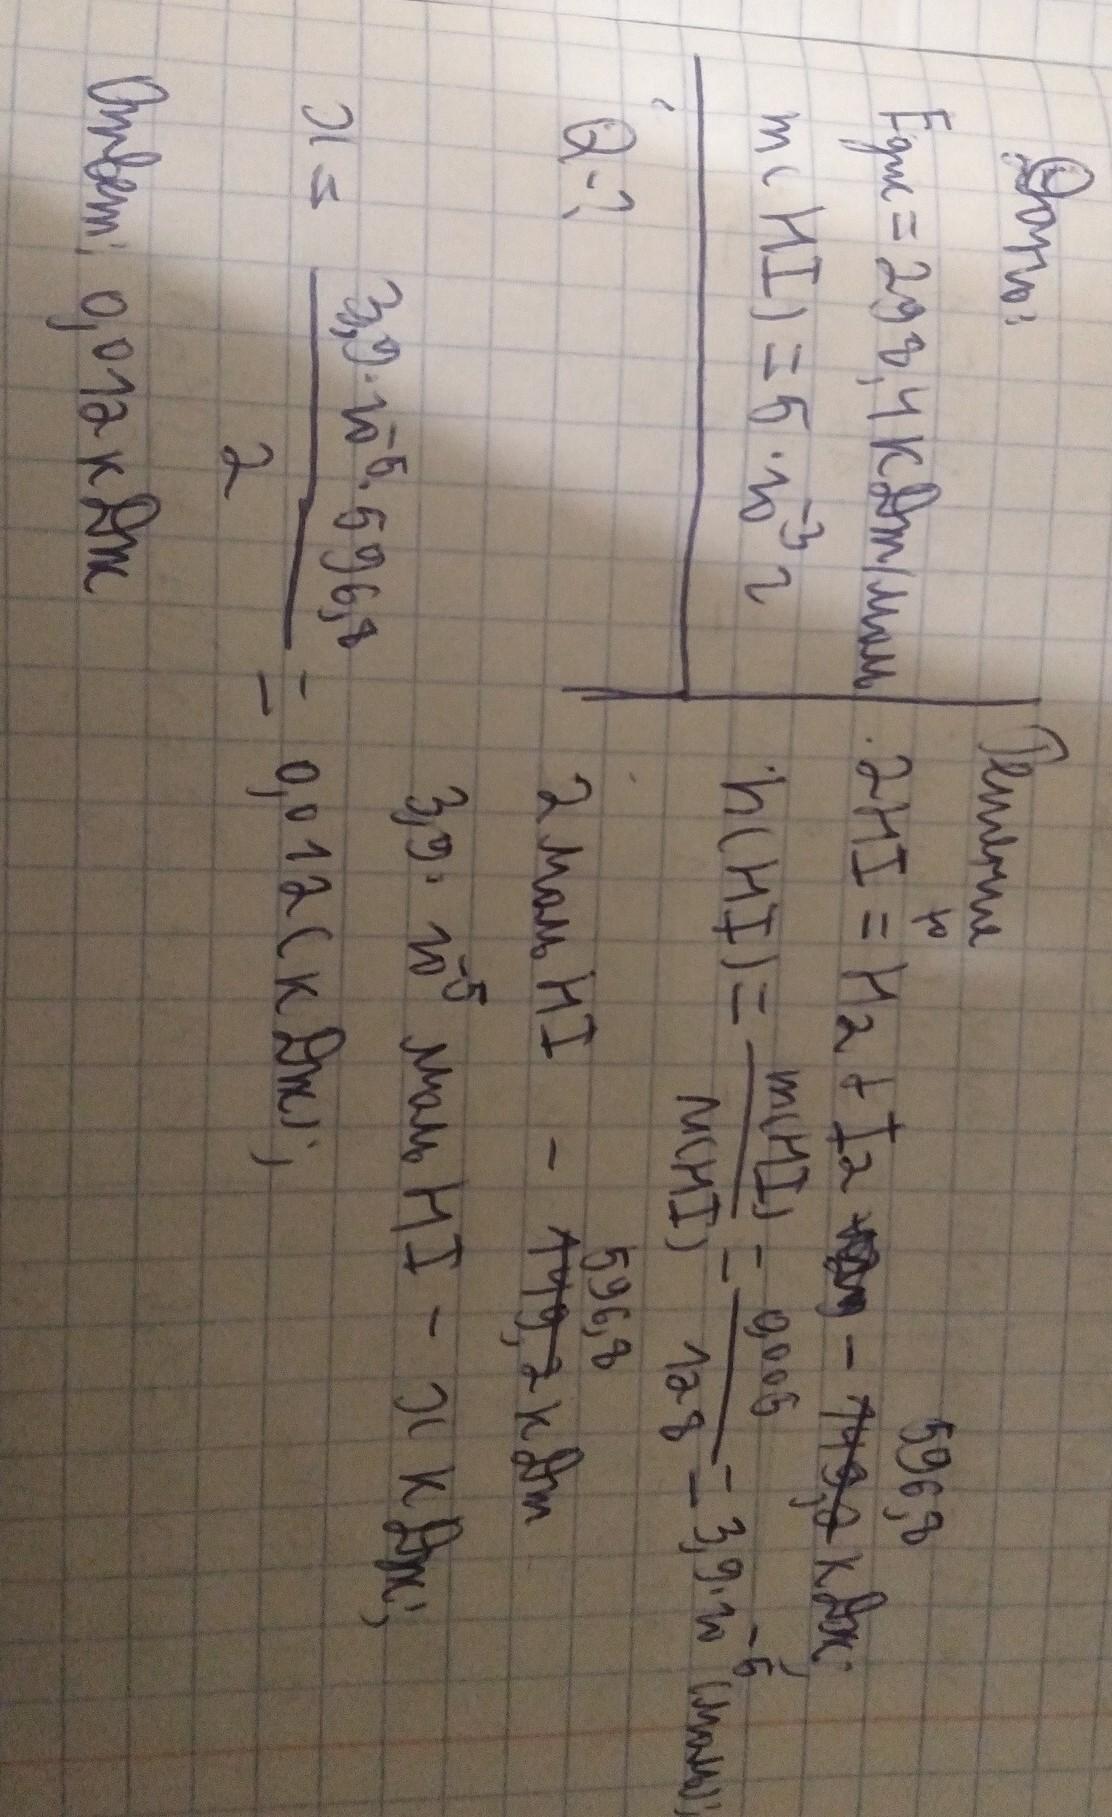 Дано:
Eдис = 298,4 кДж/моль
m(HI) = 5 · 10⁻³ г
Q-?
Решение
2HI = H2 + I2 - 596,8 кДж;
n(HI) = m(HI)/M(HI) = 0,005/128 = 3,9·10⁻⁵ (моль);
2 моль HI - 596,8 кДж
3,9 · 10⁻⁵ моль HI - x кДж;
x = 3,9·10⁻⁵·596,8/2 = 0,012 (кДж);
Ответ: 0,012 кДж